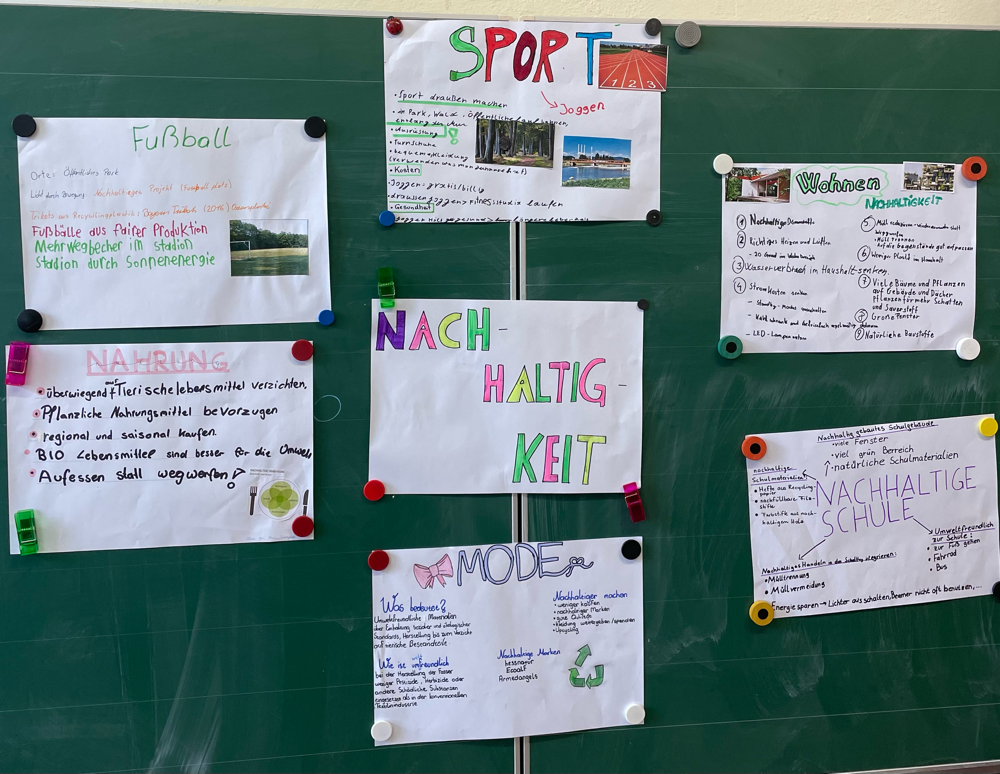 SPORT
1 2 3
Joggen
• Sport draußen machen
• in Park, Wald, Öffentliche Laufbahnen,
entlang der
• Ausrüstung
• Turnschuhe
• bequeme Kleidung
• Kosten
Joggen: gratis/billig
draussen joggen > Fitnesstudio laufen
Gesundheit
Fußball
Orte: Öffentliches Park
Licht durch Bewegung Nachhaltiges Projekt (Fussballplatz)
Trikots aus Recyclingplastik: Bayern Trikots (2016)
Fußbälle aus fairer Produktion
Mehrwegbecher im stadion
Stadion durch Sonnenenergie
Wohnen
NACHHALTIGKEIT
1 Nachhaltige
2 Richtiges Heizen und Lüften
- 20 Grad im Wohnbereich
3 Wasserverbrauch im Haushalt senken
4 Stromkosten senken
- Standby-Modus
- LED-Lampen nutzen
5
wegwerfen
• Müll trennen
auf die Gegenstände gut aufpassen
6 Weniger Plastik im Haushalt
7 Viele Bäume und Pflanzen
auf Gebäude und Dächer
Pflanzen für mehr Schatten
und Sauerstoff
8 Große Fenster
9 Natürliche Baustoffe
NACH-
HALTIG-
KEIT
NAHRUNG
• überwiegend auf Tierische lebensmittel verzichten,
• Pflanzliche Nahrungsmittel bevorzugen
• regional und saisonal kaufen.
• BIO Lebensmittel sind besser für die Umwelt
• Aufessen statt wegwerfen!
Nachhaltig gebautes Schulgebäude
• viele Fenster
• viel grün Bereich
• natürliche Schulmaterialien
nachhaltige
Schulmaterialien:
• Hefte aus Recycling-
papier
• nachfüllbare Filz-
stifte
• Farbstifte aus nach-
haltigem Holz
NACHHALTIGE
SCHULE
Umweltfreundlich
zur Schule:
• zu Fuß gehen
• Fahrrad
• Bus
Nachhaltiges Handeln in den Schulalltag integrieren:
• Mülltrennung
• Müllvermeidung
Energie sparen → Lichter ausschalten, Beamer nicht oft benutzen,...
MODE
Was bedeutet?
Umweltfreundliche Materialien
über Einhaltung sozialer und ökologischer
Standards, Herstellung bis zum Verzicht
auf tierische Bestandteile
Wie ist umweltfreundlich
bei der Herstellung der Fasser
weniger Pestizide, Herbizide oder
andere Schädliche Substanzen
eingesetzt als in der konventionellen
Textilindustrie
Nachhaltiger machen
• weniger kaufen
• nachhaltiger Marken
• gute Qualität
• Kleidung weitergeben/spenden
• Upcycling
Nachhaltige Marken
hessnatur
Ecoalf
Armedangels